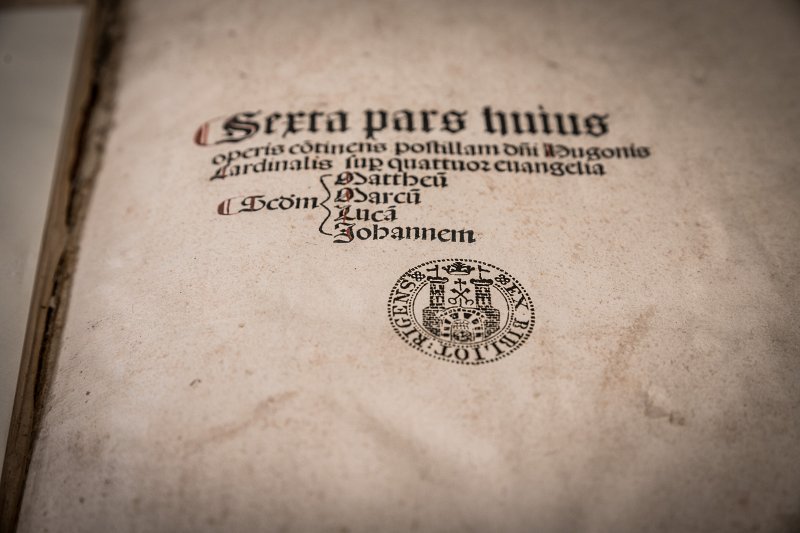 Sexta pars huius
operis cōtinens postillam dñi Hugonis
Cardinalis sup quattuor euangelia
Scđm
Mattheū
Marcū
Lucā
Johannem
EX BIBLIOT: RIGENS